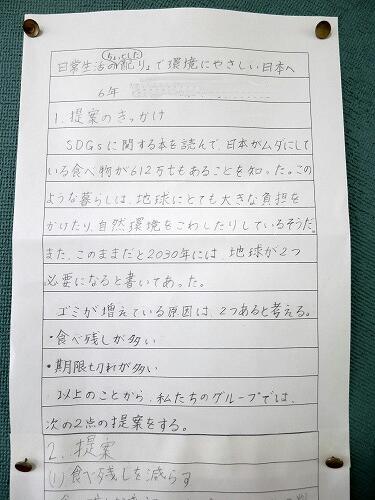 日常生活の「ちょっとした配り」で環境にやさしい日本へ
6年
1.提案のきっかけ
SDGsに関する本を読んで、日本がムダにして
いる食べ物が612万tもあることを知った。この
ような暮らしは、地球にとても大きな負担を
かけたり、自然環境をこわしたりしているそうだ。
また、このままだと2030年には、地球が2つ
必要になると書いてあった。
ゴミが増えている原因は、2つあると考える。
・食べ残しが多い
・期限切れが多い
以上のことから、私たちのグループでは、
次の2点の提案をする。
2.提案
(1)食べ残しを減らす